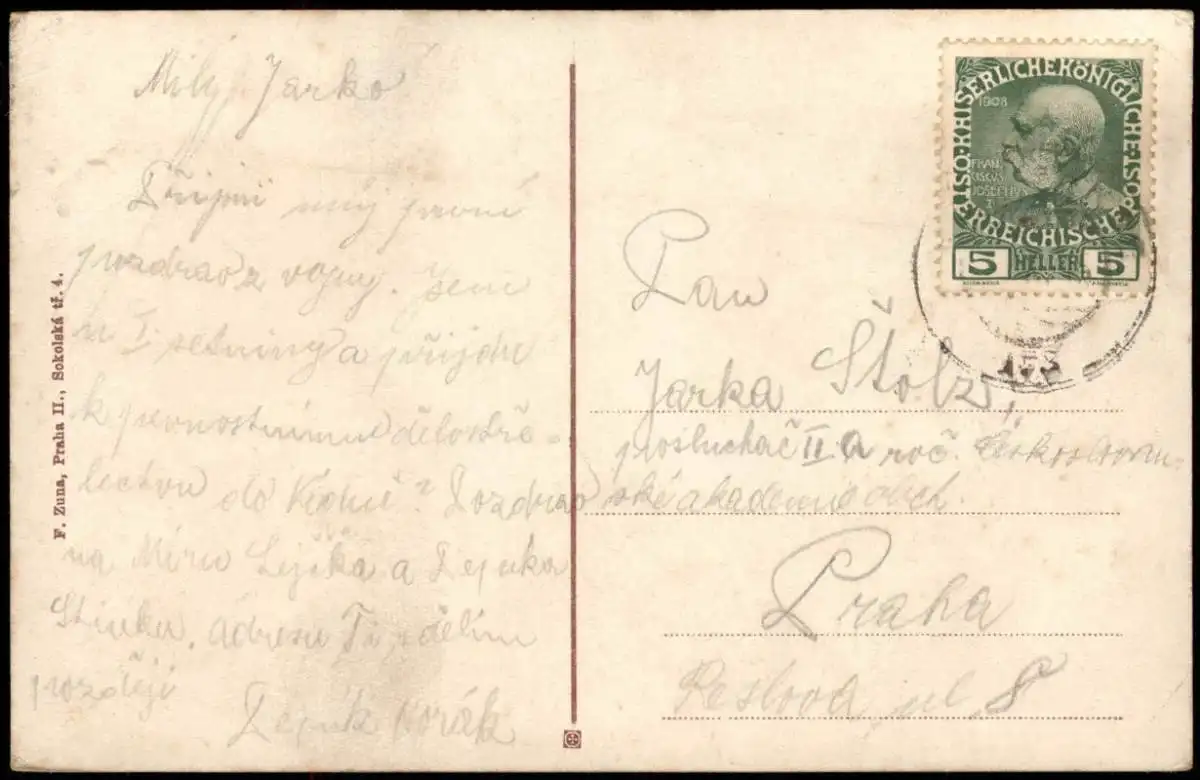 Milý Jarko
Přijmi můj první
pozdrav z vojny. Jsem
u I. setniny a přijdu
k pevnostnímu dělostře-
lectvu do Pozdrav
na Míru a Pepíka
adresu Ti sdělím
později
Pepík Horák
F. Zuna, Praha II., Sokolská tř. 4.
KAISERLICHEKÖNIGLICHE ÖSTERREICHISCHE POST
1908
FRAN
CISCVS
JOSEPH
I
5 HELLER 5
Pan
Jarka Štolz,
posluchač II. A roč. českoslovan-
ské akademie obch.
Praha
ul 8